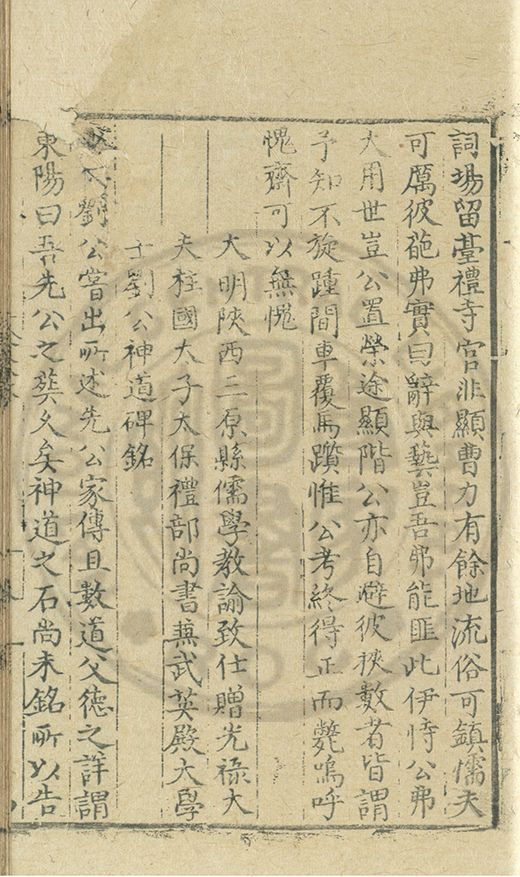 詞場留臺禮寺官非顯曹力有餘地流俗可鎮懦夫
可厲彼葩弗實曰辭與藝豈吾弗能匪此伊恃公弗
大用世豈公置榮途顯階公亦自避彼挾數者皆謂
予知不旋踵間車覆馬躓惟公考終得正而斃嗚呼
愧齋可以無愧
大明陝西三原縣儒學教諭致仕贈光祿大
夫柱國太子太保禮部尚書蕪武英殿大學
士劉公神道碑銘
劉公嘗出所述先公家傳且數道父德之詳謂
東陽曰吾先公之葬久矣神道之石尚未銘所以告